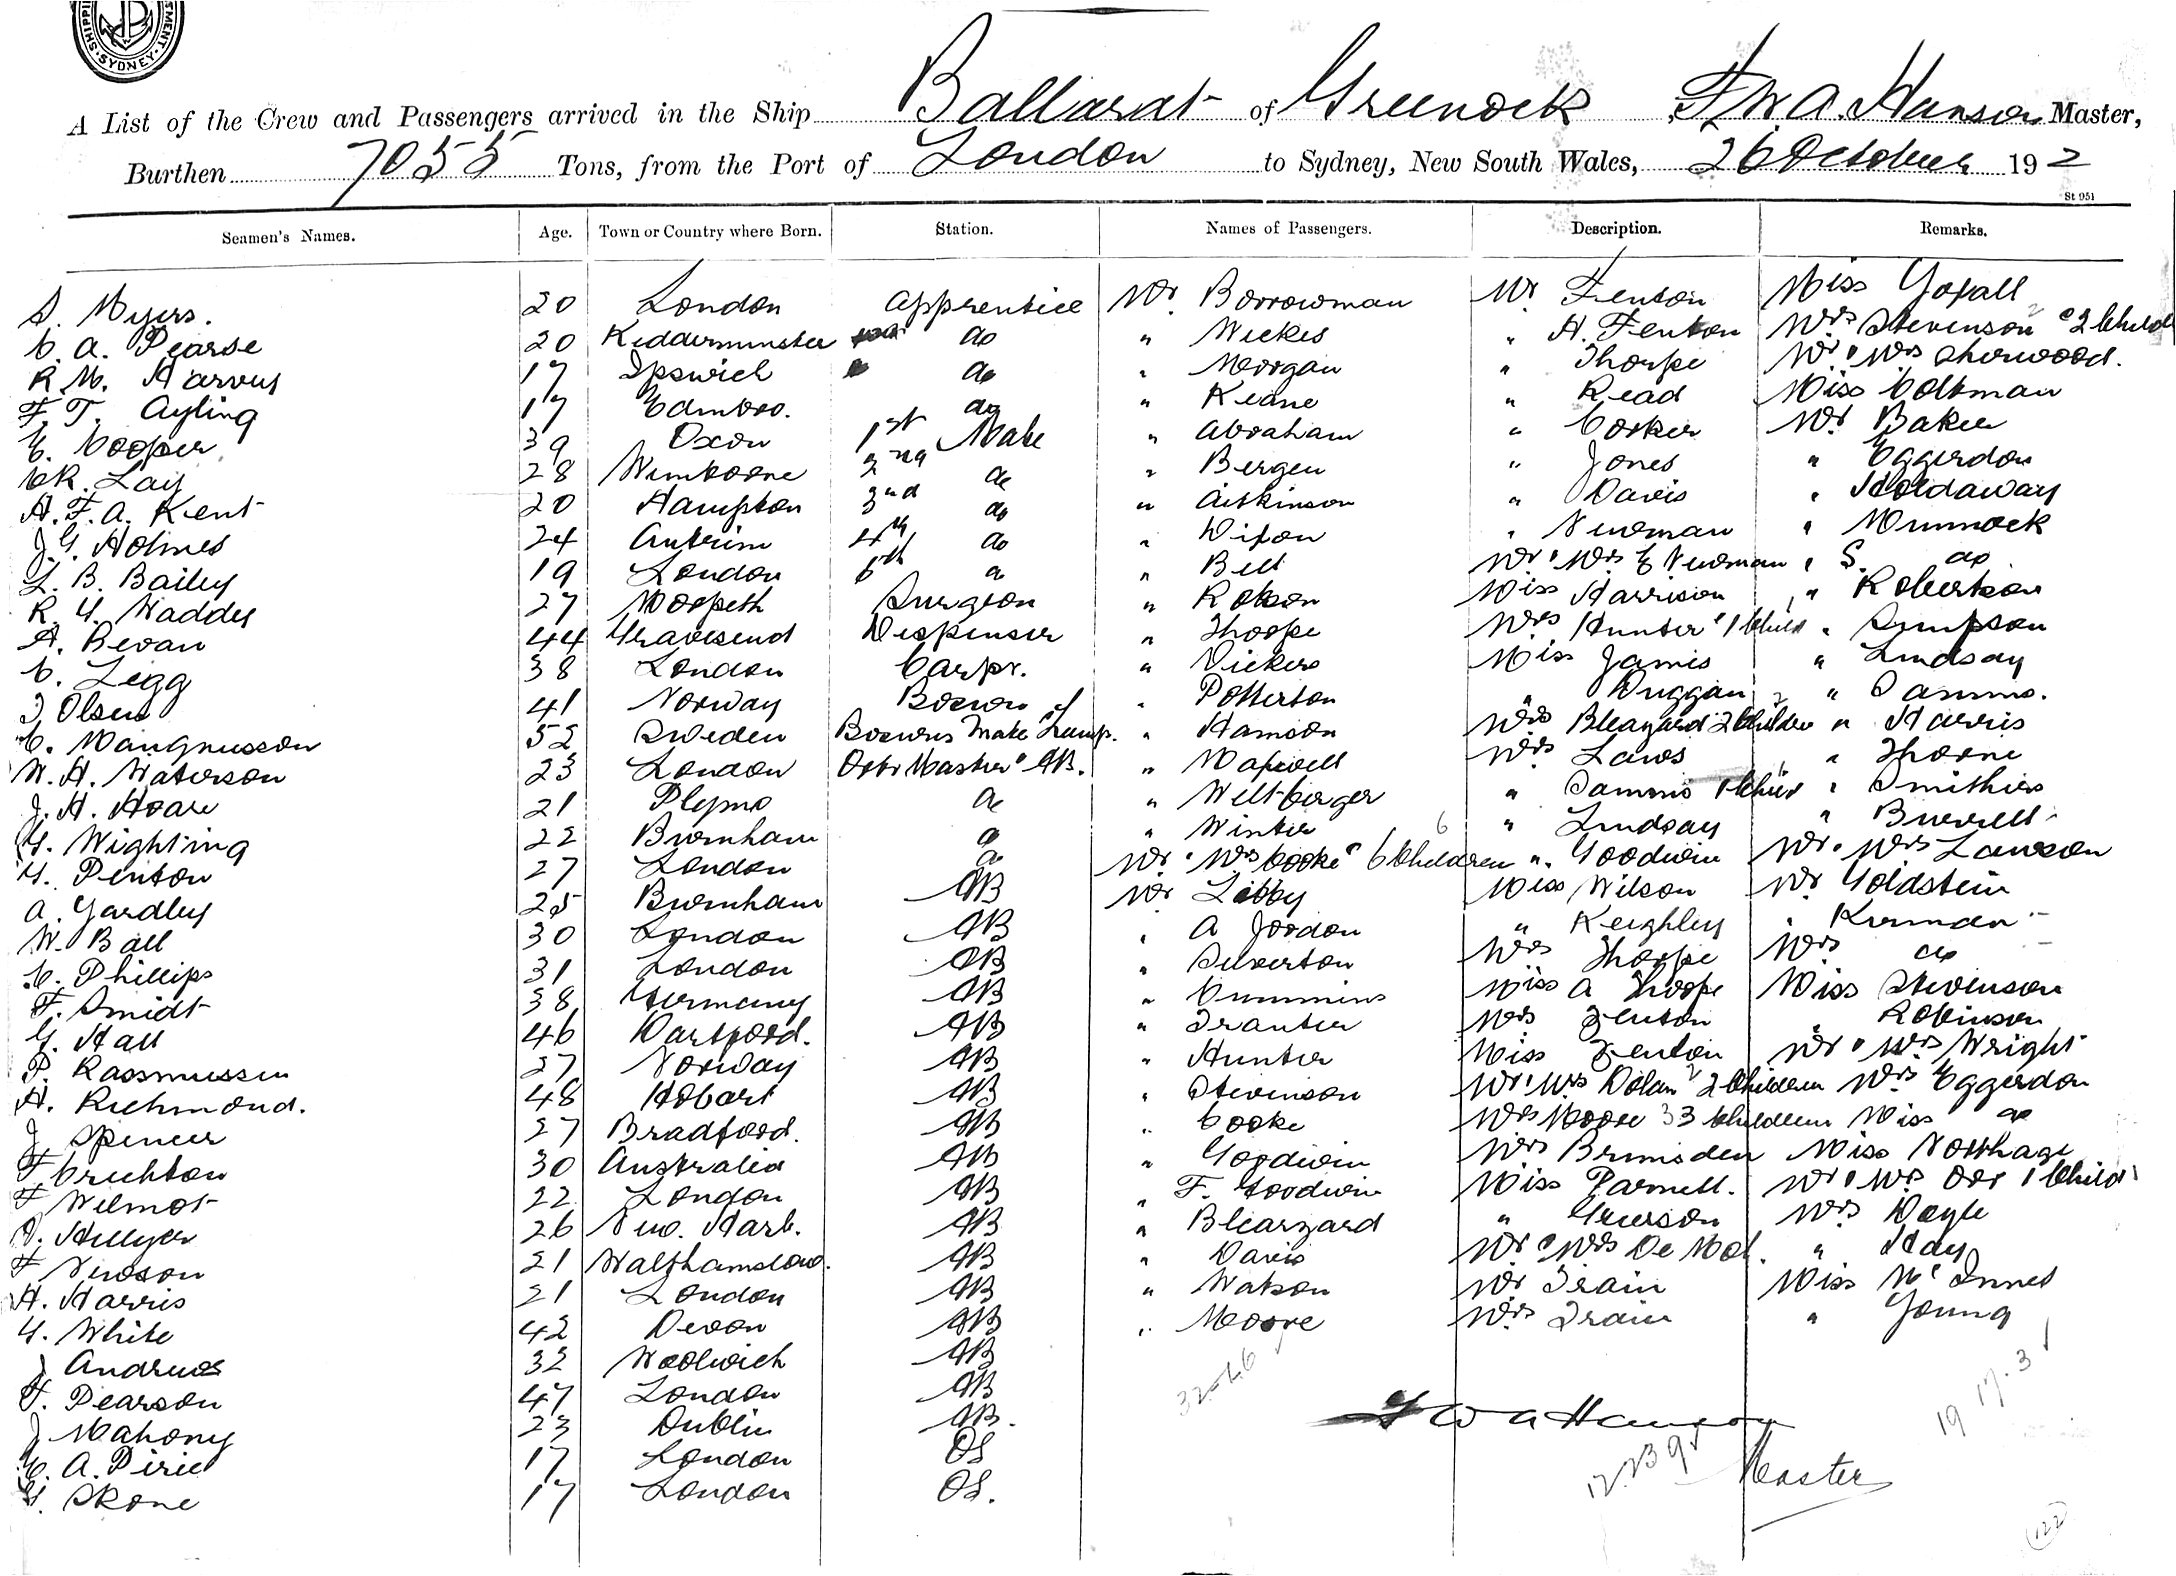 SHIPPI SMENT SYDNEY
A List of the Crew and Passengers arrived in the Ship Ballarat of Greenock F. W. A. Hanson Master,
Burthen 7055 Tons, from the Port of London to Sydney, New South Wales, 26 October 192
St 951
Seamen's Names. Age. Town or Country where Born. Station. Names of Passengers. Description. Remarks.
S. Myers. 20 London Apprentice Mr. Borrowman Mr Fenton Miss Goxall
C. A. Pearse 20 Kidderminster do " Wickes " H. Fenton Mrs Stevenson & 2 Child
R. M. Harvey 17 Ipswich do " Morgan " Thorpe Mr & Mrs Sherwood.
F. T. Ayling 17 Edinboro. do " Keane " Read Miss Coltman
E. Cooper 39 Oxon 1st Mate " Abraham " Corker Mr. Baker
CR. Lay 28 Wimborne 2nd do " Bergen " Jones " Eggerdon
H. F. A. Kent 20 Hampton 3rd do " Aitkinson " Davis " Holdaway
J. G. Holmes 24 Antrim 4th do " Dixon " Newman " Munnock
L. B. Bailey 19 London 5th do " Bell Mr & Mrs E Newman " S. do
R. G. Waddy 27 Morpeth Surgeon " Robson Miss Harrison " Robertson
A. Bevan 44 Gravesend Dispenser " Thorpe Mrs Hunter & 1 Child " Simpson
C. Legg 38 London Carpr. " Vickers Miss James " Lindsay
J Olsen 41 Norway Bosun " Potterton " Duggan " Tamms.
C. Mangnusson 52 Sweden Bosuns Mate & Lamp. " Hamson Mrs Bleazard 2 Children " Harris
W. H. Waterson 23 London Qtr Master & AB. " Maxwell Mrs Laws " Thorne
J. H. Hoare 21 Plymo do " Weltberger " Tamms 1 Child " Smithers
G. Wighting 22 Burnham do " Winter " Lindsay " Burrell
G. Penton 27 London do Mr & Mrs Cooke & 6 Children " Goodwin Mr & Mrs Lawson
A. Yardley 25 Burnham AB Mr. Libby Miss Wilson Mr Goldstein
W. Ball 30 London AB " A Jordon " Keighley " Kirman
C. Phillips 31 London AB " Silverton Mrs Thorpe Mrs do
F. Smidt 38 Germany AB " Cummins Miss A Thorpe Miss Stevenson
G. Hall 46 Dartford. AB " Tranter Mrs Fenton " Robinson
P. Rassmussen 27 Norway AB " Hunter Miss Fenton Mr & Mrs Wright
H. Richmond. 48 Hobart AB " Stevenson Mr & Mrs Dolan 2 Children Mrs Eggerdon
J Spencer 27 Bradford. AB " Cooke Mrs Moore 3 3 Children Miss do
F Crichton 30 Australia AB " Goodwin Mrs Brimsden Miss Northage
F Wilmot 22 London AB " F. Goodwin Miss Parnell. Mr & Mrs Orr 1 Child
D. Hillyer 26 New. Harb. AB " Blearzard " Grierson Mrs Doyle
F Newson 21 Walthamstow. AB " Davis Mr & Mrs De Mol. " Hay
H. Harris 21 London AB " Watson Mr Train Miss Mc Innes
G. White 42 Devon AB " Moore Mrs Train " Young
J Andrews 32 Woolwich AB
F. Pearson 47 London AB
J Mahony 23 Dublin AB.
C. A. Pirie 17 London OS
G. Skone 17 London OS.
F W A Hanson
Master
19 17. 3
122